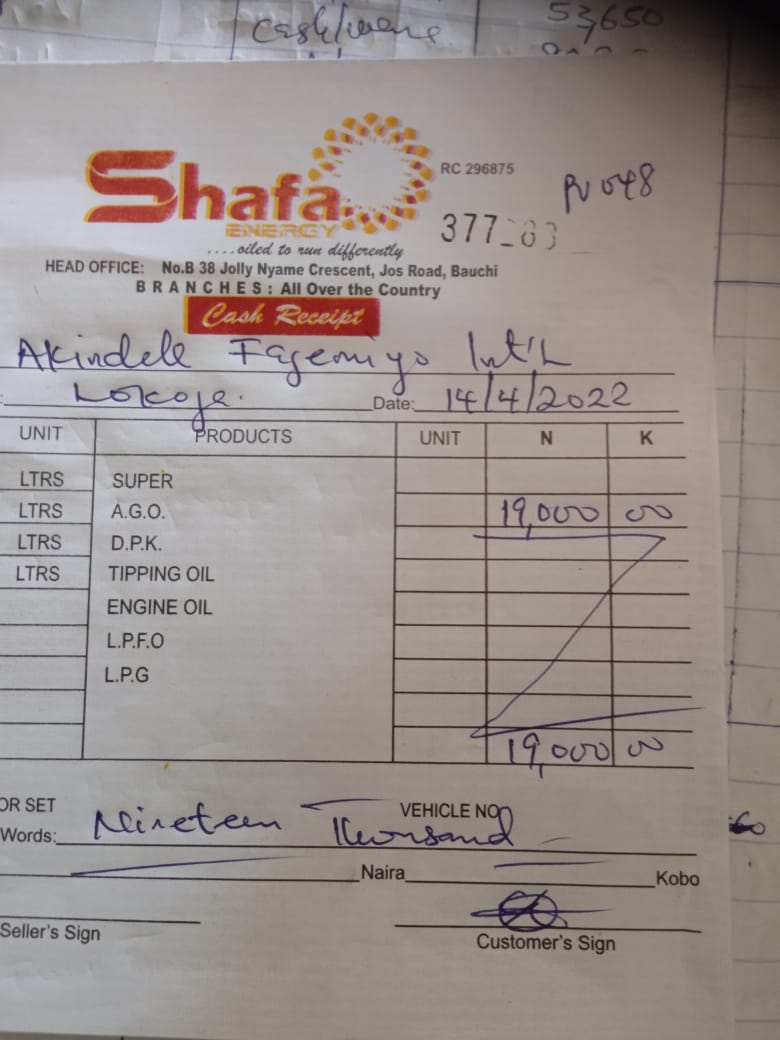 Cash/
53,650
Shafa
ENERGY
RC 296875
PV 048
....oiled to run differently
HEAD OFFICE: No.B 38 Jolly Nyame Crescent, Jos Road, Bauchi
BRANCHES: All Over the Country
Cash Receipt
Akindele Fagemiyo Int'L
: Lokoja. Date: 14/4/2022
UNIT PRODUCTS UNIT N K
LTRS SUPER
LTRS A.G.O. 19,000 00
LTRS D.P.K.
LTRS TIPPING OIL
ENGINE OIL
L.P.F.O
L.P.G
19,000 00
OR SET VEHICLE NO
Words: Nineteen Thousand
Naira Kobo
Seller's Sign
Customer's Sign